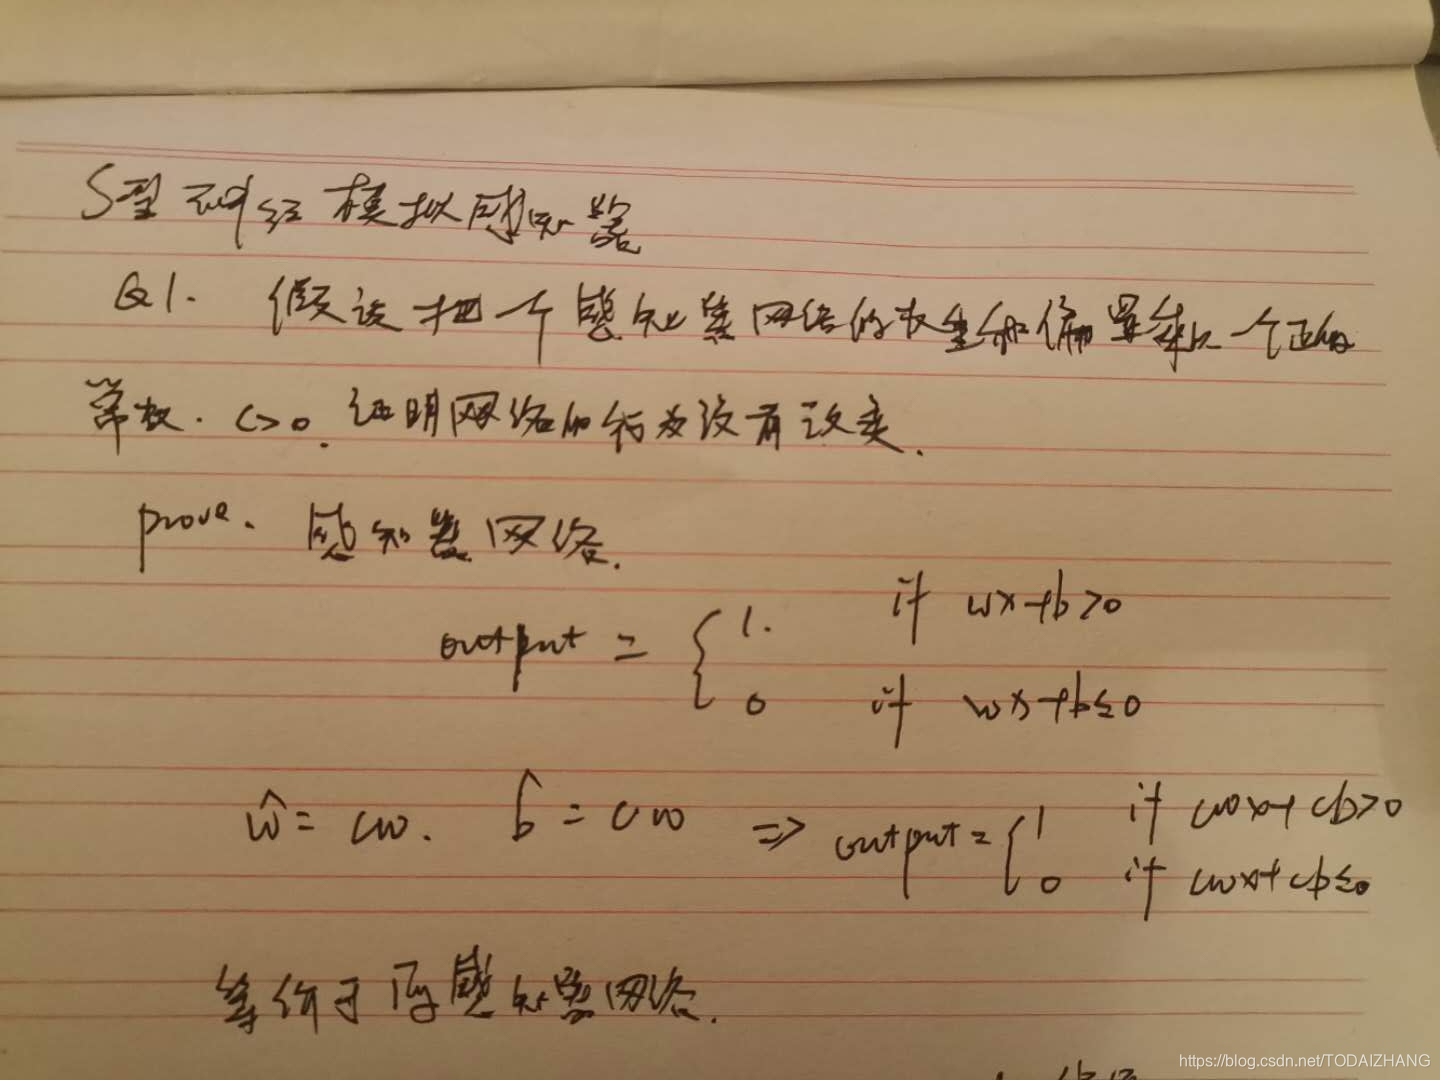 S型神经模拟感知器
Q1. 假设把一个感知器网络的权重和偏置乘以一个正的
常数. c>0. 证明网络的行为没有改变.
prove. 感知器网络.
output = { 1. if wx+b>0
0 if wx+b≤0
ŵ = cw. b̂ = cw => output = { 1 if cwx+cb>0
0 if cwx+cb≤0
等价于原感知器网络.
https://blog.csdn.net/TODAIZHANG